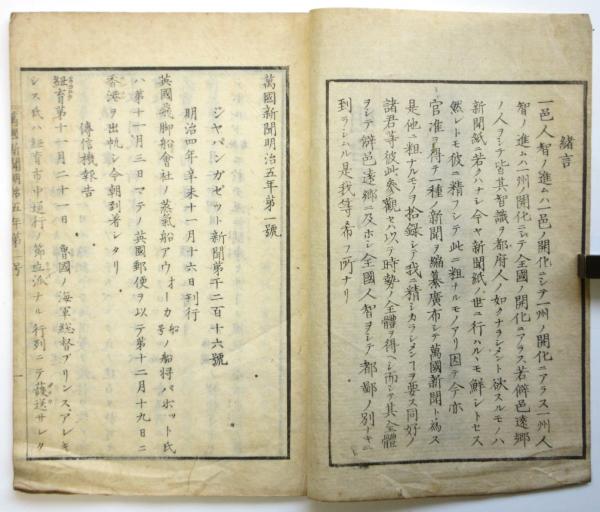 緒言
一邑人智ノ進ムハ一邑ノ開化ニシテ一州ノ開化ニアラス一州人
智ノ進ムハ一州ノ開化ニシテ全國ノ開化ニアラス若僻邑遠郷
ノ人ヲシテ皆其智識ヲ都府人ノ如クナラシメント欲スルモノハ
新聞紙ニ若クハナシ今ヤ新聞紙ノ世ニ行ハルヽモノ鮮シトセス
然レトモ彼ニ精フシテ此ニ粗ナルモノアリ因テ今亦
官准ヲ得テ一種ノ新聞ヲ編纂廣布シテ萬國新聞ト為ス
是他ニ粗ナルモノヲ拾録シテ我ニ精シカラシメンヿヲ要ス同好ノ
諸君等彼此參觀セハ以テ時勢ノ全體ヲ得ヘシ而シテ其全體
ヲシテ僻邑遠郷ニ及ホシ全國人智ヲシテ都鄙ノ別ナキニ
到ラシムルハ是我等ノ希フ所ナリ
萬國新聞明治五年第一號
ジヤパンガゼツト新聞第千二百十六號
明治四年辛未十一月十六日刊行
英國飛脚船會社ノ蒸氣船アウオーカ船号ノ船將バホット氏
ハ第十一月三日マテノ英國郵便ヲ以テ第十二月十九日ニ
香港ヲ出帆シ今朝到著シタリ
傳信機報告
紐育第十一月二十一日 魯國ノ海軍総督プリンスアレキ
シス氏ハ紐育市中巡行ノ節立派ナル行列ニテ護送サレタ
萬國新聞明治五年第一号 一